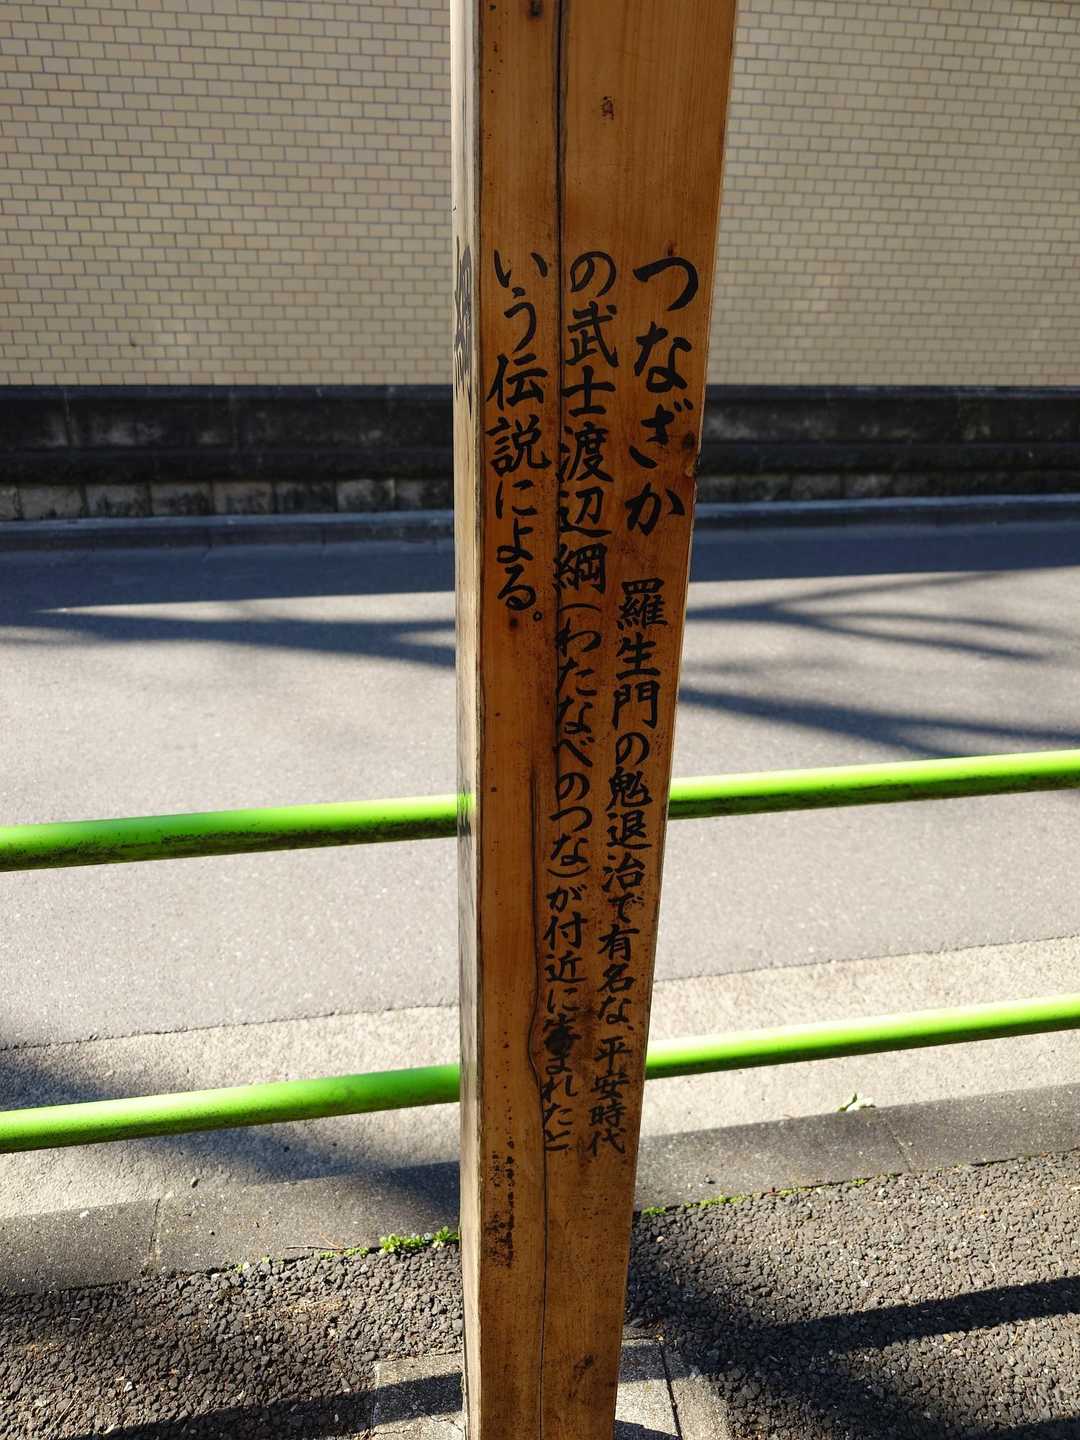 つなざか　羅生門の鬼退治で有名な、平安時代
の武士渡辺綱(わたなべのつな)が付近に生まれたと
いう伝説による。
綱